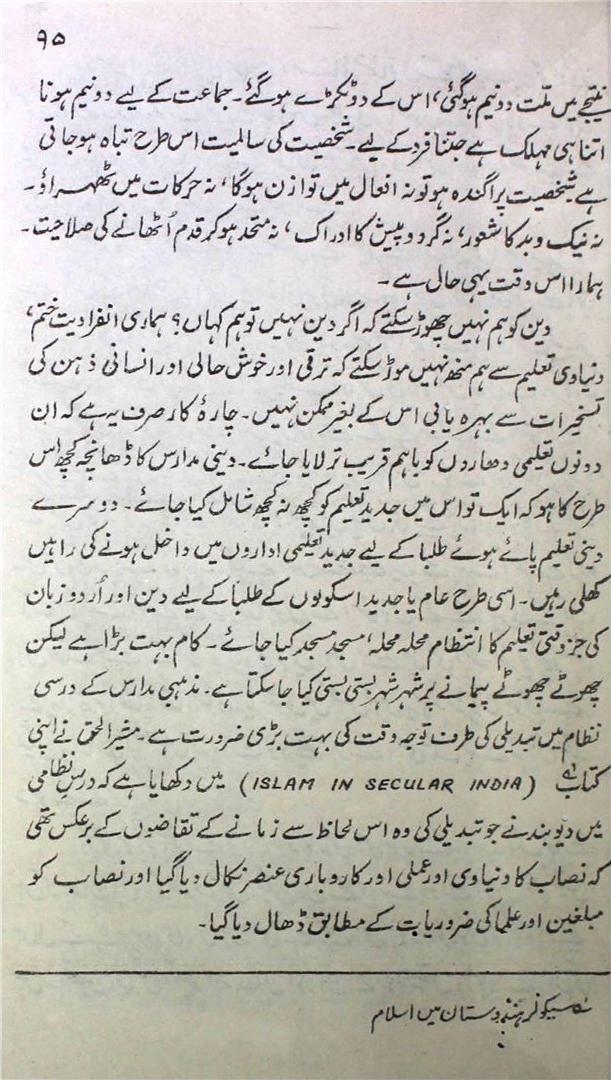 ۹۵
نتیجے میں ملّت دو نیم ہوگئی، اس کے دو ٹکڑے ہوگئے۔ جماعت کے لیے دو نیم ہونا
اتنا ہی مہلک ہے جتنا فرد کے لیے۔ شخصیت کی سالمیت اس طرح تباہ ہو جاتی
ہے شخصیت پراگندہ ہو تو نہ افعال میں توازن ہوگا، نہ حرکات میں ٹھہراؤ۔
نہ نیک و بد کا شعور، نہ گرد و پیش کا ادراک، نہ متحد ہو کر قدم اُٹھانے کی صلاحیت۔
ہمارا اس وقت یہی حال ہے۔
دین کو ہم نہیں چھوڑ سکتے کہ اگر دین نہیں تو ہم کہاں؟ ہماری انفرادیت ختم،
دنیاوی تعلیم سے ہم منھ نہیں موڑ سکتے کہ ترقی اور خوش حالی اور انسانی ذہن کی
تسخیرات سے بہرہ یابی اس کے بغیر ممکن نہیں۔ چارۂ کار صرف یہ ہے کہ ان
دونوں تعلیمی دھاروں کو باہم قریب تر لایا جائے۔ دینی مدارس کا ڈھانچہ کچھ اس
طرح کا ہو کہ ایک تو اس میں جدید تعلیم کو کچھ نہ کچھ شامل کیا جائے۔ دوسرے
دینی تعلیم پائے ہوئے طلبا کے لیے جدید تعلیمی اداروں میں داخل ہونے کی راہیں
کھلی رہیں۔ اسی طرح عام یا جدید اسکولوں کے طلبا کے لیے دین اور اُردو زبان
کی جز وقتی تعلیم کا انتظام محلہ محلہ، مسجد مسجد کیا جائے۔ کام بہت بڑا ہے لیکن
چھوٹے چھوٹے پیمانے پر شہر شہر بستی بستی کیا جا سکتا ہے۔ مذہبی مدارس کے درسی
نظام میں تبدیلی کی طرف توجہ وقت کی بہت بڑی ضرورت ہے۔ مشیر الحق نے اپنی
کتاب (ISLAM IN SECULAR INDIA) میں دکھایا ہے کہ درس نظامی
میں دیوبند نے جو تبدیلی کی وہ اس لحاظ سے زمانے کے تقاضوں کے برعکس تھی
کہ نصاب کا دنیاوی اور عملی اور کاروباری عنصر نکال دیا گیا اور نصاب کو
مبلغین اور علما کی ضروریات کے مطابق ڈھال دیا گیا۔
سیکولر ہندوستان میں اسلام